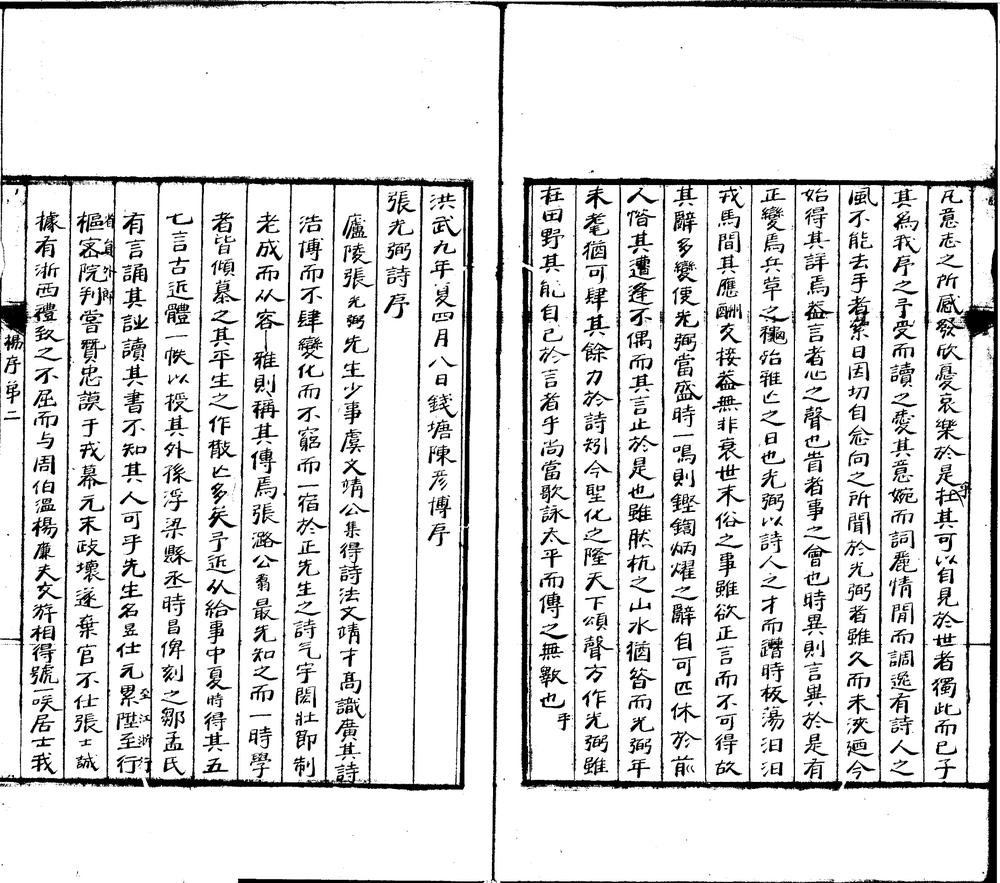 凡意志之所感發欣憂哀樂於是乎在其可以自見於世者獨此而已子
其為我序之予受而讀之愛其意婉而詞麗情閒而調逸有詩人之
風不能去手者累日因切自念向之所聞於光弼者雖久而未浹廼今
始得其詳焉蓋言者心之聲也昔者事之會也時異則言異於是有
正變焉兵草之穐殆雅亡之日也光弼以詩人之才而躔時板蕩汨汨
戎馬間其應酬交接蓋無非衰世末俗之事雖欲正言而不可得故
其辭多變使光弼當盛時一鳴則鏗鏑炳燿之辭自可匹休於前
人偹其遭逢不偶而其言止於是也雖然杭之山水猶昝而光弼年
未耄猶可肆其餘力於詩矧今聖化之隆天下頌聲方作光弼雖
在田野其能自已於言者乎尚當歌詠太平而傳之無斁也乎
洪武九年夏四月八日錢塘陳彥博序
張光弼詩序
廬陵張光弼先生少事虞文靖公集得詩法文靖才高識廣其詩
浩博而不肆變化而不窮而一宿於正先生之詩气宇閎壯即制
老成而从容一雅則稱其傳焉張潞公翥最先知之而一時學
者皆傾慕之其平生之作散亡多矣予近从給事中夏時得其五
七言古近體一帙以授其外孫浮梁縣丞時昌俾刻之鄒孟氏
有言誦其詩讀其書不知其人可乎先生名昱仕元累陞至行至江浙行
省員外郎樞密院判嘗贊忠謨于戎幕元末政壞遂棄官不仕張士誠
據有浙西禮致之不屈而与周伯溫楊廉夫交游相得號一咲居士我
楊序第二